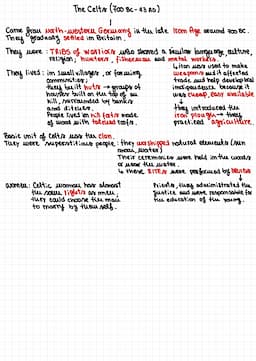 The Celts (700 BC - 43 AD)
Came from north-western Germany in the late Iron Age around 700 BC.
They gradually settled in Britain.
They were : TRIBES of WARRIORS who shared a similar language, culture,
religion; hunters, fishermen and metal workers.
↳ iron was used to make
weapons and it affected
trade and help developed
independence because it
was cheap, easy available
They lived : in small villages, or farming
communities;
they built huts → groups of
houses built on the top of an
hill, surrounded by banks
and ditches.
People lived in hill forts made
of wood with tatched roofs.
they introduced the
iron plough → they
practiced agriculture.
Basic unit of Celts was the clan.
They were superstitious people: they worshipped natural elements (sun
moon, water)
Their cerimonies were held in the woods
or near the water.
↳ these RITES were performed by DRUIDS
women: Celtic woman had almost
the same rights as men,
they could choose the man
to marry by themself.
Priests, they administrated the
justice and were responsible for
the education of the young.